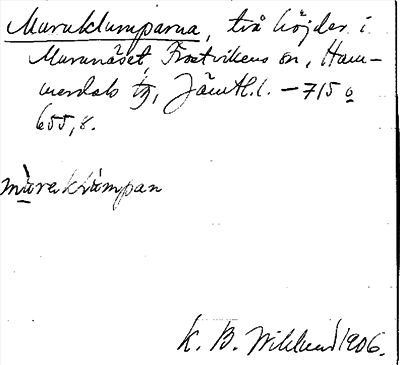 Muruklumparna, två höjder i
Murunäset, Frostvikens sn, Ham-
merdals tg, Jämtl. l. — 715 o
655,8.
mùrʉklùmpan
K. B. Wiklund 1906.